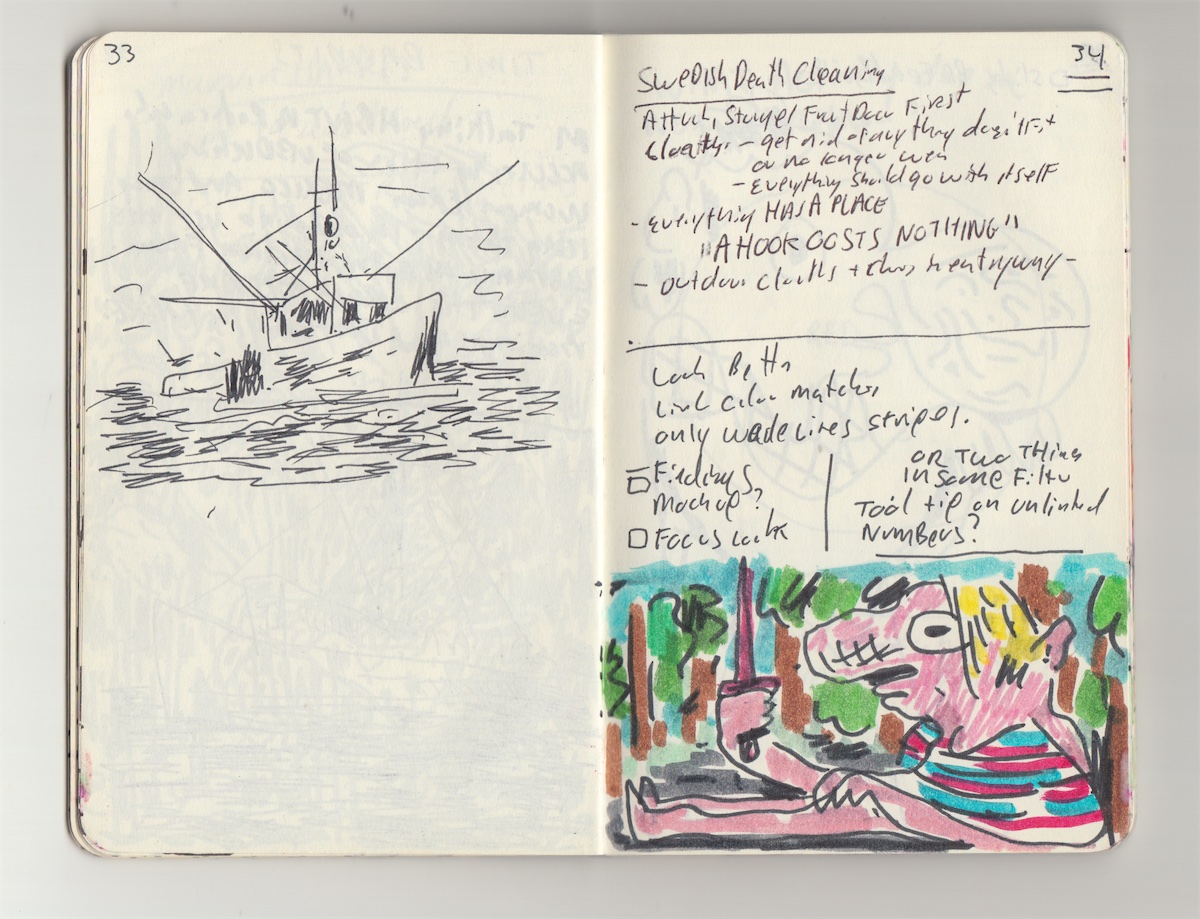 33
34
Swedish Death Cleaning
Attick, Storage/ Front Door First
Cloaths - get rid of anything doesn't Fit
or no longer worn
- Everything should go with itself
- Everything HAS A PLACE
"A HOOK COSTS NOTHING"
- outdoor cloaths + in entryway -
Look
Link color matches
only stripes.
Findings
Mockup?
Focus
OR TWO THings
IN Some Filtr
Tool tip on unlinked
NUMBers?